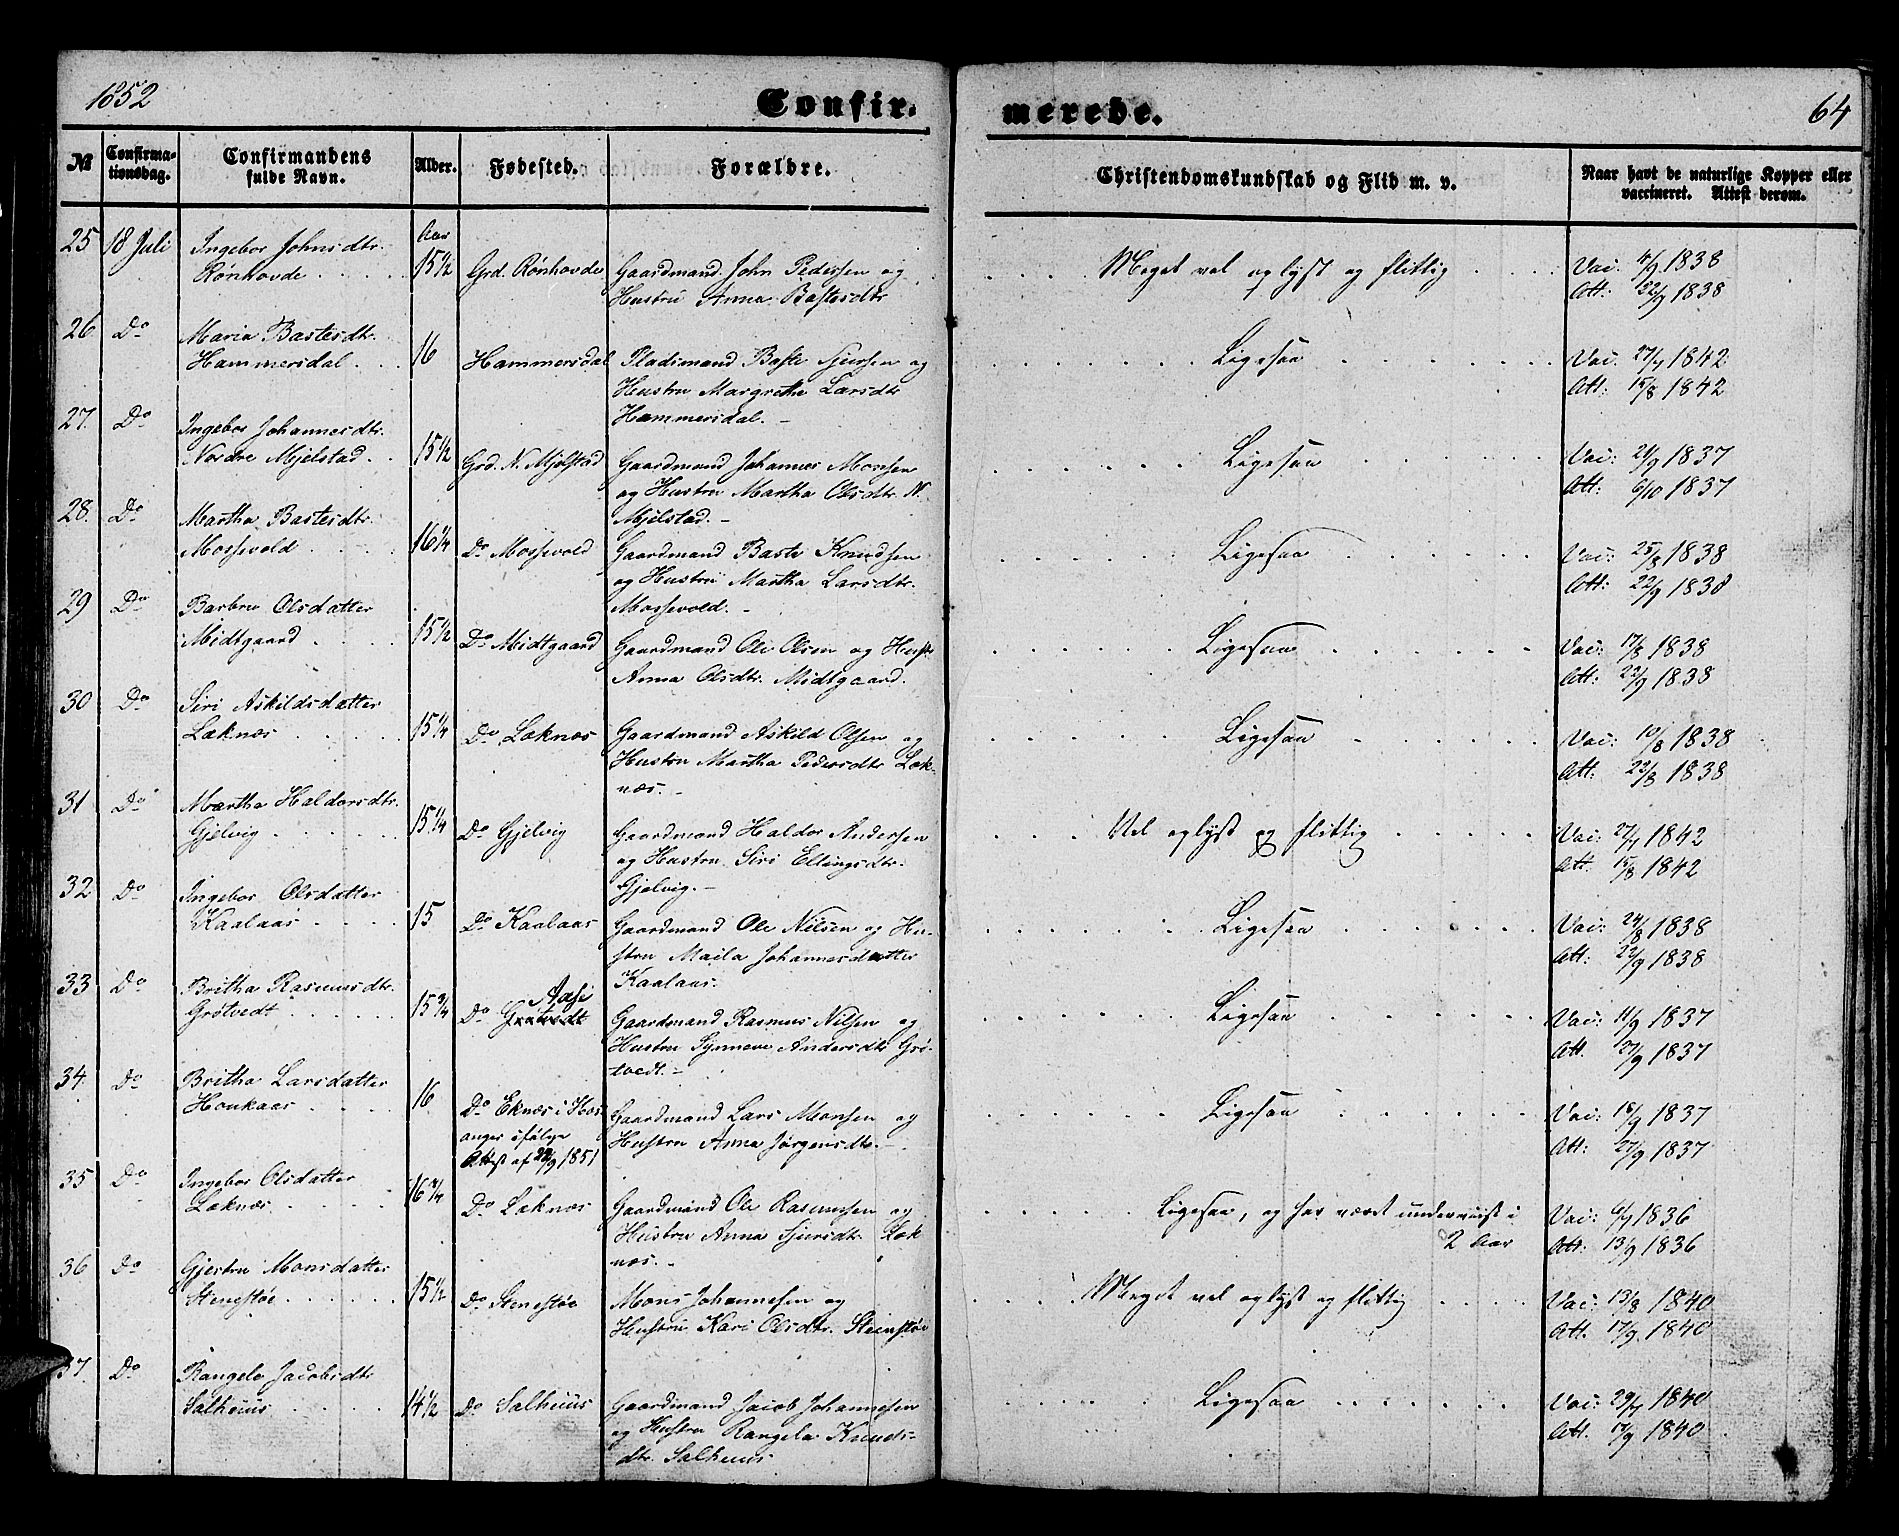 1852
Confir.
merede.
64
№
Confirma-
tionsdag.
Confirmandens
fulde Navn.
Alder.
Fødested.
Forældre.
Christendomskundskab og Flid m. v.
Naar havt de naturlige Kopper eller
vaccineret. Attest derom.
25 18 Juli Ingebor Johnsdtr. Aar
Rønhovde 15 1/2 Grd. Rønhovde Gaardmand John Pedersen og Meget vel oplyst og flittig Vac. 4/9 1838
Hustru Anna Bastesdtr Att: 22/9 1838
26 Do Maria Bastesdtr.
Hammersdal 16 Hammersdal Pladsmand Baste Sjursen og Ligesaa Vac. 27/7 1842
Hustru Margrethe Larsdtr Att: 15/8 1842
Hammersdal.
27. Do Ingebor Johannesdtr.
Nordre Mjelstad 15 1/2 Grd. N. Mjelstad Gaardmand Johannes Monsen Ligesaa Vac: 21/9 1837
og Hustru Martha Olsdtr. N. Att: 6/10 1837
Mjelstad.
28. Do Martha Bastesdtr.
Mossevold 16 1/4 Do Mossevold Gaardmand Baste Knudsen Ligesaa Vac: 25/8 1838
og Hustru Martha Larsdtr. Att: 22/9 1838
Mossevold.
29 Do Barbru Olsdatter
Midtgaard 15 1/2 Do Midtgaard Gaardmand Ole Olsen og Hustr. Ligesaa Vac: 17/8 1838
Anna Olsdtr. Midtgaard. Att: 22/9 1838
30 Do Siri Askildsdatter
Loknæs 15 1/4 Do Loknæs Gaardmand Askild Olsen og Ligesaa Vac: 10/8 1838
Hustru Martha Pedersdtr Lok- Att: 22/8 1838
næs.
31 Do Martha Haldorsdtr.
Gjelvig 15 1/4 Do Gjelvig Gaardmand Haldor Andersen Vel oplyst og flittig Vac: 27/7 1842
og Hustru Siri Ellingsdtr. Att. 15/8 1842
Gjelvig.
32 Do Ingebor Olsdatter
Kaalaas 15 Do Kaalaas Gaardmand Ole Nilsen og Hu- Ligesaa Vac: 24/8 1838
stru Maila Johannesdatter Att: 22/9 1838
Kaalaas.
33 Do Britha Rasmusdtr.
Grøtvedt 15 3/4 Do Grøtvedt Gaardmand Rasmus Nilsen og Ligesaa Vac: 11/9 1837
Hustru Synneve Andersdtr Grø- Att. 27/9 1837
tvedt.
34. Do Britha Larsdatter
Houkaas 16 Do Eknæs i Hos- Gaardmand Lars Monsen og Ligesaa Vac: 18/9 1837
anger ifølge Hustru Anna Jørgensdtr. Att: 27/9 1837
Attest af 22/9 1851
35 Do Ingebor Olsdatter
Loknæs 16 3/4 Do Loknæs Gaardmand Ole Rasmusen og Ligesaa, og har været underviist i Vac: 6/7 1836
Hustru Anna Sjursdtr. Lok 2 Aar Att: 13/9 1836
næs.
36 Do Gjestru Monsdatter
Stenestøe 15 1/2 Do Stenestøe Mons Johannesen og Meget vel oplyst og flittig Vac: 13/8 1840
Hustru Kari Olsdtr. Steinstøe Att. 17/9 1840
37. Do Rangele Jacobsdtr
Salhuus 14 1/2 Do Salhuus Gaardmand Jacob Johannesen Ligesaa Vac: 29/7 1840
og Hustru Rangela Knuds- Att. 17/9 1840
dtr. Salhuus